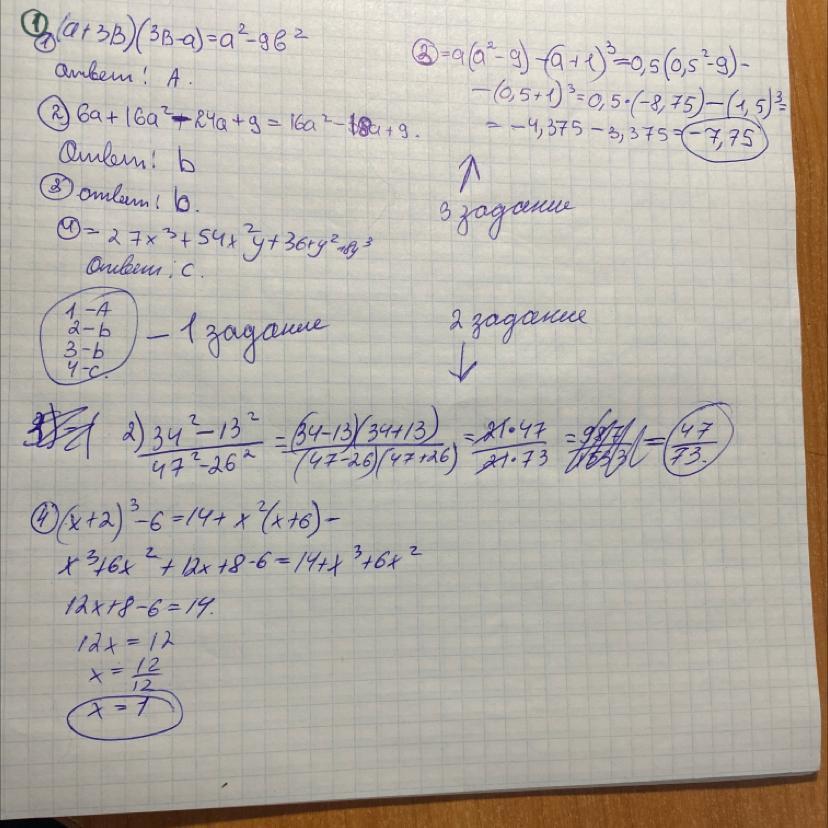 1
1 (a+3B)(3B-a)=a²-9b²
Ответ: A.
2 6a+16a²-24a+9=16a²-18a+9.
Ответ: b
3 ответ: b.
4 = 27x³+54x²y+36+y²+8y³
Ответ: c.
1-A
2-b
3-b
4-c.
- 1 задание
=a(a²-9)-(a+1)³=0,5(0,5²-9)-
-(0,5+1)³=0,5·(-8,75)-(1,5)³=
= -4,375-3,375=-7,75
3 задание
2 задание
2) 34²-13² / 47²-26² = (34-13)(34+13) / (47-26)(47+26) = 21·47 / 21·73 = = 47 / 73.
4 (x+2)³-6=14+x²(x+6)-
x³+6x²+12x+8-6=14+x³+6x²
12x+8-6=14.
12x=12
x= 12 / 12
x=1